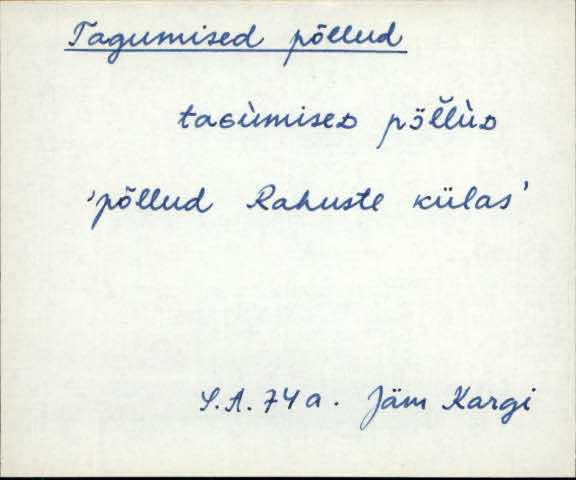 Tagumised põllud
taɢùmiseᴅ pɔ̈l̆lùᴅ
'põllud Rahuste külas'
S.A. 74 a. Jäm Kargi